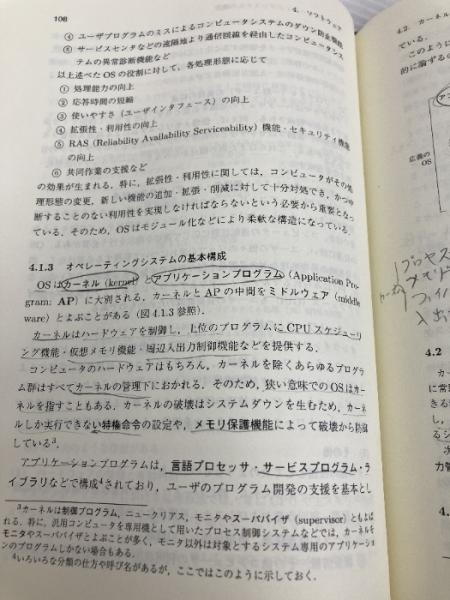 108
4. ソフトウェア
④ ユーザプログラムのミスによるコンピュータシステムのダウン防止機能
⑤ サービスセンタなどの遠隔地より通信回線を経由したコンピュータシス
テムの異常診断機能など
以上述べた OS の役割に対して，各処理形態に応じて
① 処理能力の向上
② 応答時間の短縮
③ 使いやすさ（ユーザインタフェース）の向上
④ 拡張性・利用性の向上
⑤ RAS (Reliability Availability Serviceability) 機能・セキュリティ機能
の向上
⑥ 共同作業の支援など
の効果が生まれる．特に，拡張性・利用性に関しては，コンピュータがその処
理形態の変更，新しい機能の追加・拡張・削減に対して十分対処でき，かつ
断することのない利用性を実現しなければならないという必要から重要となっ
ている．そのため，OS はモジュール化などにより柔軟な構造になっている．
4.1.3 オペレーティングシステムの基本構成
OS はカーネル (kernel) とアプリケーションプログラム (Application Pro-
gram: AP) に大別される．カーネルと AP の中間をミドルウェア (middle
ware) とよぶことがある（図 4.1.3 参照）．
カーネルはハードウェアを制御し，上位のプログラムに CPU スケジュー
リング機能・仮想メモリ機能・周辺入出力制御機能などを提供する．
コンピュータのハードウェアはもちろん，カーネルを除くあらゆるプログラ
ム群はすべてカーネルの管理下におかれる．そのため，狭い意味での OS はカー
ネルを指すこともある．カーネルの破壊はシステムダウンを生むため，カーネ
ルしか実行できない特権命令の設定や，メモリ保護機能によって破壊から防御
している³．
アプリケーションプログラムは，言語プロセッサ・サービスプログラム・ラ
イブラリなどで構成⁴されており，ユーザのプログラム開発の支援を基本とし
³カーネルは制御プログラム，ニュークリアス，モニタやスーパバイザ (supervisor) ともよば
れる．特に，汎用コンピュータを専用機として用いたプロセス制御システムなどでは，カーネルを
モニタやスーパバイザとよぶことが多く，モニタ以外は対象とするシステム専用のアプリケーショ
ンのプログラムしかない場合もある．
⁴いろいろな分類の仕方や呼び名があるが，ここではこのように示しておく．
4.2 カーネル
ている．
このように
的に論ずるの
広義の
OS
プロセス
メモリ
ファイ
入出
4.2
カー
に常
きる